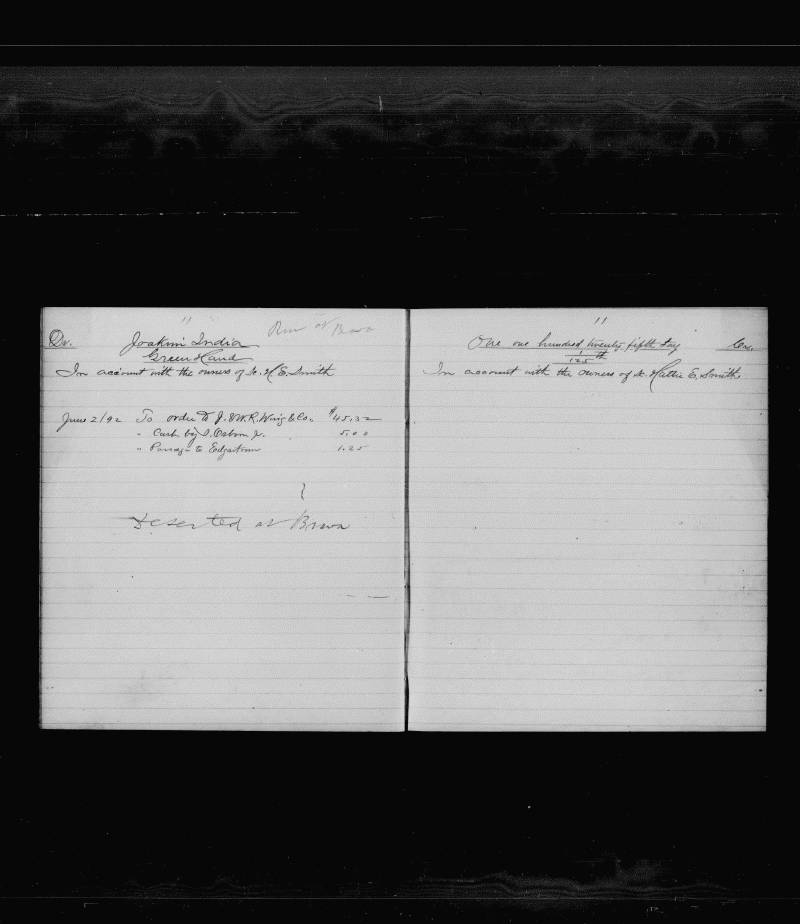 11
Run at Brava
Dr. Joakim India
Green Hand
In account with the owners of Sc. H. E. Smith
June 2/92 To order to J. & W. R. Wing & Co. $45.32
" Cash by S. Osborn Jr. 5.00
" Passage to Edgartown 1.25
Deserted at Brava
11
One one hundred twenty fifth Lay Cr.
1/125 th
In account with the owners of Sc. Hattie E. Smith